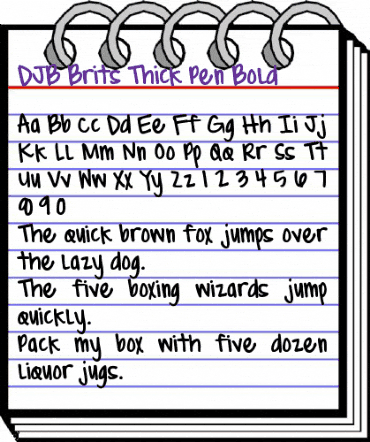 DJB Brits Thick Pen Bold
Aa Bb Cc Dd Ee Ff Gg Hh Ii Jj
Kk LL Mm Nn Oo Pp Qq Rr Ss Tt
Uu Vv Ww Xx Yy Zz 1 2 3 4 5 6 7
8 9 0
The quick brown fox jumps over
the Lazy dog.
The five boxing wizards jump
quickLy.
Pack my box with five dozen
Liquor jugs.